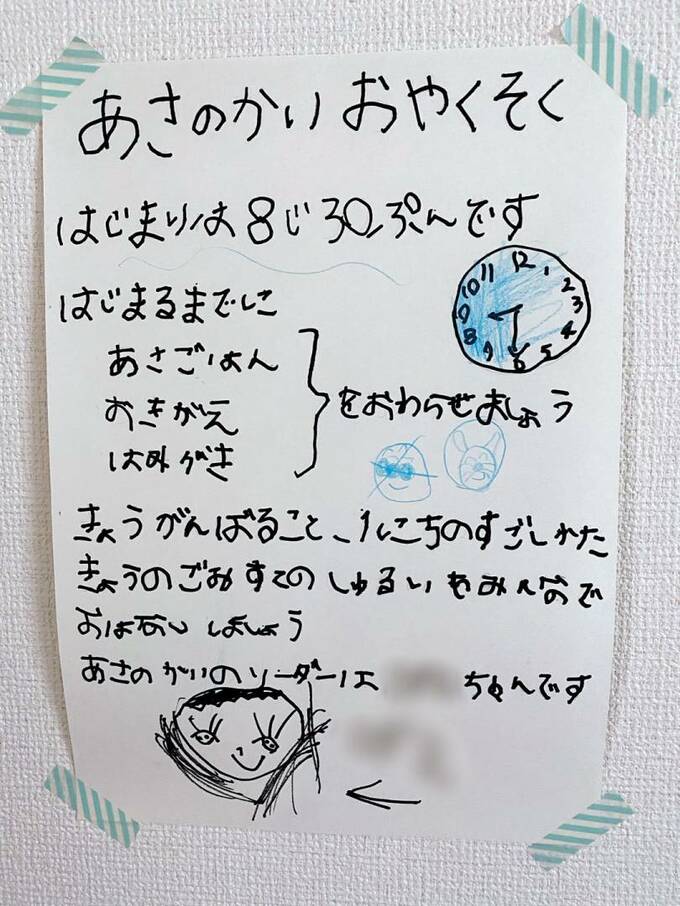 あさのかい おやくそく
はじまりは 8じ30ぷんです
はじまるまでに
あさごはん
おきがえ
はみがき
をおわらせましょう
12
1
2
3
4
5
6
7
8
9
10
11
きょうがんばること、1にちのすごしかた
きょうのごみすてのしゅるいをみんなで
おはなし しましょう
あさの かいのリーダーは ちゃんです